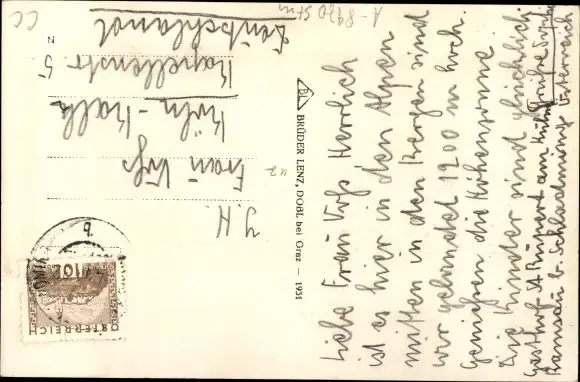 Liebe Frau Voß Herrlich
ist es hier in den Alpen
mitten in den Bergen sind
wir gelandet 1200 m hoch.
Genießen die Höhensonne
Die Kinder sind glücklich
Gasthof St. Rupert am Kulm
Grüße Sophie
Ramsau b. Schladming Österreich
BL BRÜDER LENZ, DOBL bei Graz — 1951
A-8970
CC
Frau Voß
Köln-Kalk
Kapellenstr. 5
Deutschland
ÖSTERREICH